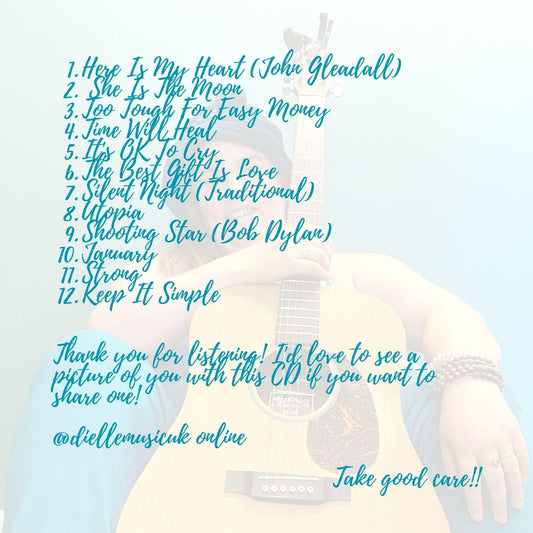 1. Here Is My Heart (John Gleadall)
2. She Is The Moon
3. Too Tough For Easy Money
4. Time Will Heal
5. It's OK To Cry
6. The Best Gift Is Love
7. Silent Night (Traditional)
8. Utopia
9. Shooting Star (Bob Dylan)
10. January
11. Strong
12. Keep It Simple
Thank you for listening! I'd love to see a
picture of you with this CD if you want to
share one!
@diellemusicuk online
Take good care!!